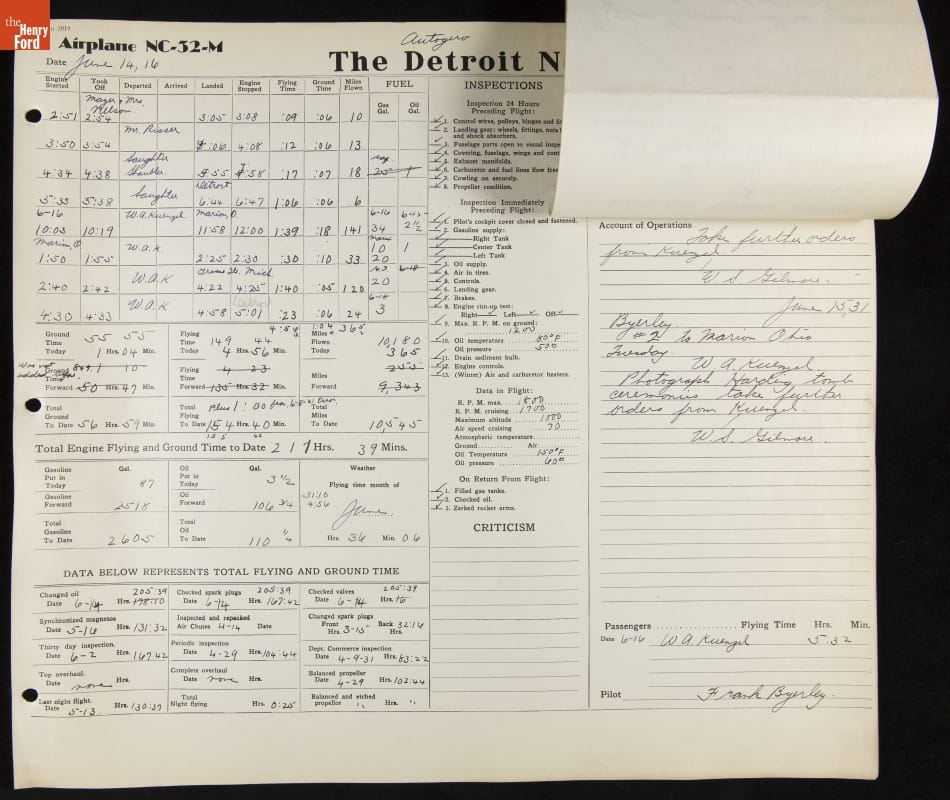 the
Henry
Ford
2019
Airplane NC-52-M
Autogiro
Date June 14, 16
The Detroit N
Engine Started Took Off Departed Arrived Landed Engine Stopped Flying Time Ground Time Miles Flown FUEL
Gas Gal. Oil Gal.
Nelson
2:51 2:54 3:05 3:08 :09 :06 10
Mr. Risser
3:50 3:54 4:06 4:08 :12 :06 13
Slaughter
4:34 4:38 4:55 4:58 :17 :07 18 25 1
Slaughter Detroit
5:35 5:38 6:44 6:47 1:06 :06 6
6-16 W.A. Kuenzel Marion, O. 6-16
10:03 10:19 11:58 12:00 1:39 :18 141 34 2½
Marion O W.A.K. 10 1
1:50 1:55 2:25 2:30 :30 :10 33 20
W.A.K
2:40 2:42 4:22 4:25 1:40 :05 120 20
W.A.K Detroit
4:30 4:33 4:58 5:01 :23 :06 24 3
Ground Time Today 55 55 1 Hrs. 04 Min.
Flying Time Today 149 44 4 Hrs. 56 Min.
Miles Flown Today 10,180 365
Ground Time Forward 50 Hrs. 47 Min.
Flying Time Forward 4 23 135 Hrs. 32 Min.
Miles Forward 9,343
Ground To Date 56 Hrs. 59 Min.
Total Flying Time To Date plus 1:00 154 Hrs. 40 Min.
Total Miles To Date 10,545
Total Engine Flying and Ground Time to Date 217 Hrs. 39 Mins.
Gasoline Put in Today Gal. 87
Oil Put in Today Gal. 3½
Weather
Flying time month of
31:10
4:56
June
Gasoline Forward 2518
Oil Forward 106 3/4
Total Gasoline To Date 2605
Total Oil To Date 110 ¼
Hrs. 36 Min. 06
DATA BELOW REPRESENTS TOTAL FLYING AND GROUND TIME
Changed oil Date 6-14 205:39 Hrs.
Checked spark plugs Date 6-14 205:39 Hrs. 167:42
Checked valves Date 6-14 205:39 Hrs.
Synchronized magnetos Date 5-16 Hrs. 131:32
Inspected and repacked Air Chutes 4-14 Date
Changed spark plugs Front Hrs. 3-15 Back 32:16 Hrs.
Thirty day inspection Date 6-2 Hrs. 167:42
Periodic inspection Date 4-29 Hrs. 104:44
Dept. Commerce inspection Date 4-9-31 Hrs. 83:22
Top overhaul Date none Hrs.
Complete overhaul Date none Hrs.
Balanced propeller Date 4-29 Hrs. 102:44
Last night flight Date 5-13 Hrs. 130:37
Total Night flying Hrs. 0:25
Balanced and etched propeller " Hrs. "
INSPECTIONS
Inspection 24 Hours
Preceding Flight:
1. Control wires, pulleys, hinges and fi
2. Landing gear: wheels, fittings, nuts
and shock absorbers.
3. Fuselage parts open to visual inspe
4. Covering, fuselage, wings and cont
5. Exhaust manifolds.
6. Carburetor and fuel lines flow free
7. Cowling on securely.
8. Propeller condition.
Inspection Immediately
Preceding Flight:
1. Pilot's cockpit cover closed and fastened.
2. Gasoline supply:
Right Tank
Center Tank
Left Tank
3. Oil supply.
4. Air in tires.
5. Controls.
6. Landing gear.
7. Brakes.
8. Engine run-up test:
Right Left Off
9. Max. R. P. M. on ground:
1200
10. Oil temperature 80°F
Oil pressure 50#
11. Drain sediment bulb.
12. Engine controls.
13. (Winter) Air and carburetor heaters.
Data in Flight:
R. P. M. max. 1800
R. P. M. cruising 1700
Maximum altitude 1500
Air speed cruising 70
Atmospheric temperature
Ground Air
Oil Temperature 150°F
Oil pressure 60#
On Return From Flight:
1. Filled gas tanks.
2. Checked oil.
3. Zerked rocker arms.
CRITICISM
Account of Operations
Take further orders
from Kuenzel
W. S. Gilmore.
June 15 31
Byerley
#2 to Marion Ohio
Tuesday
W. A. Kuenzel
Photograph Harding tomb
ceremonies take further
orders from Kuenzel.
W. S. Gilmore.
Passengers Flying Time Hrs. Min.
Date 6-16 W. A. Kuenzel 5:32
Pilot Frank Byerley.